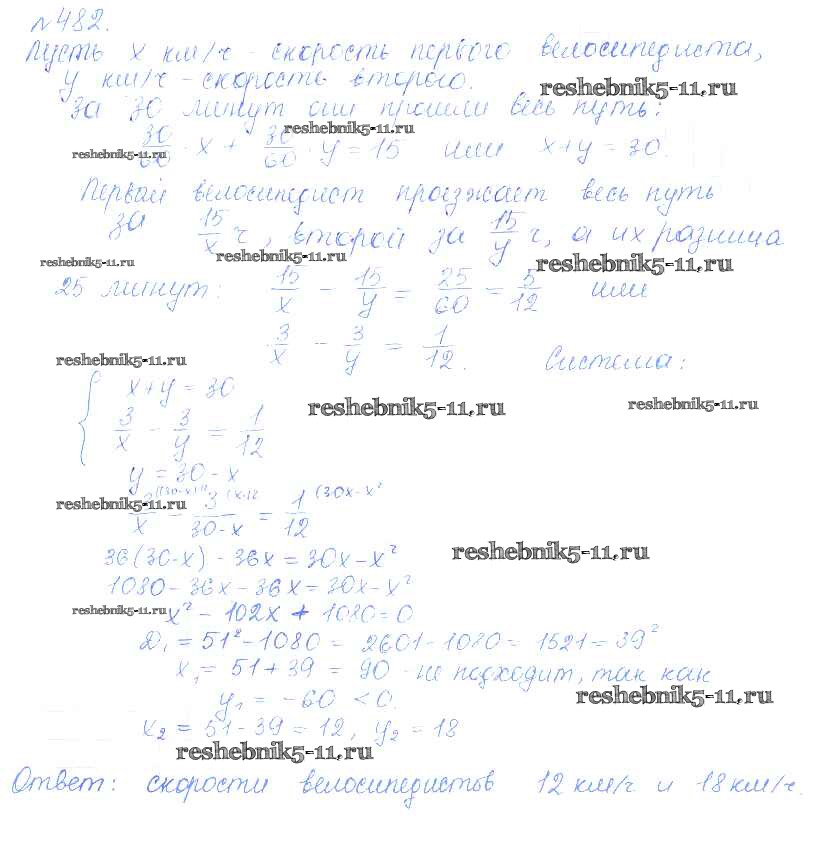 №482.
Пусть x км/ч - скорость первого велосипедиста,
y км/ч - скорость второго.
reshebnik5-11.ru
За 30 минут они прошли весь путь:
reshebnik5-11.ru
30/60 · x + 30/60 · y = 15 или x+y = 30.
reshebnik5-11.ru
Первый велосипедист проезжает весь путь
за 15/x ч, второй за 15/y ч, а их разница
reshebnik5-11.ru reshebnik5-11.ru reshebnik5-11.ru
25 минут: 15/x - 15/y = 25/60 = 5/12 или
3/x - 3/y = 1/12. Система:
reshebnik5-11.ru
{ x+y = 30
reshebnik5-11.ru reshebnik5-11.ru
3/x - 3/y = 1/12
y = 30-x
reshebnik5-11.ru
3/x - 3/30-x = 1/12 (30x-x²
36(30-x) - 36x = 30x-x²
reshebnik5-11.ru
1080-36x-36x=30x-x²
reshebnik5-11.ru
x² - 102x + 1080=0
D₁ = 51²-1080 = 2601-1080 = 1521 = 39²
x₁ = 51+39 = 90 - не подходит, так как
y₁ = -60 < 0.
reshebnik5-11.ru
x₂ = 51-39 = 12, y₂ = 18
reshebnik5-11.ru
Ответ: скорости велосипедистов 12 км/ч и 18 км/ч.